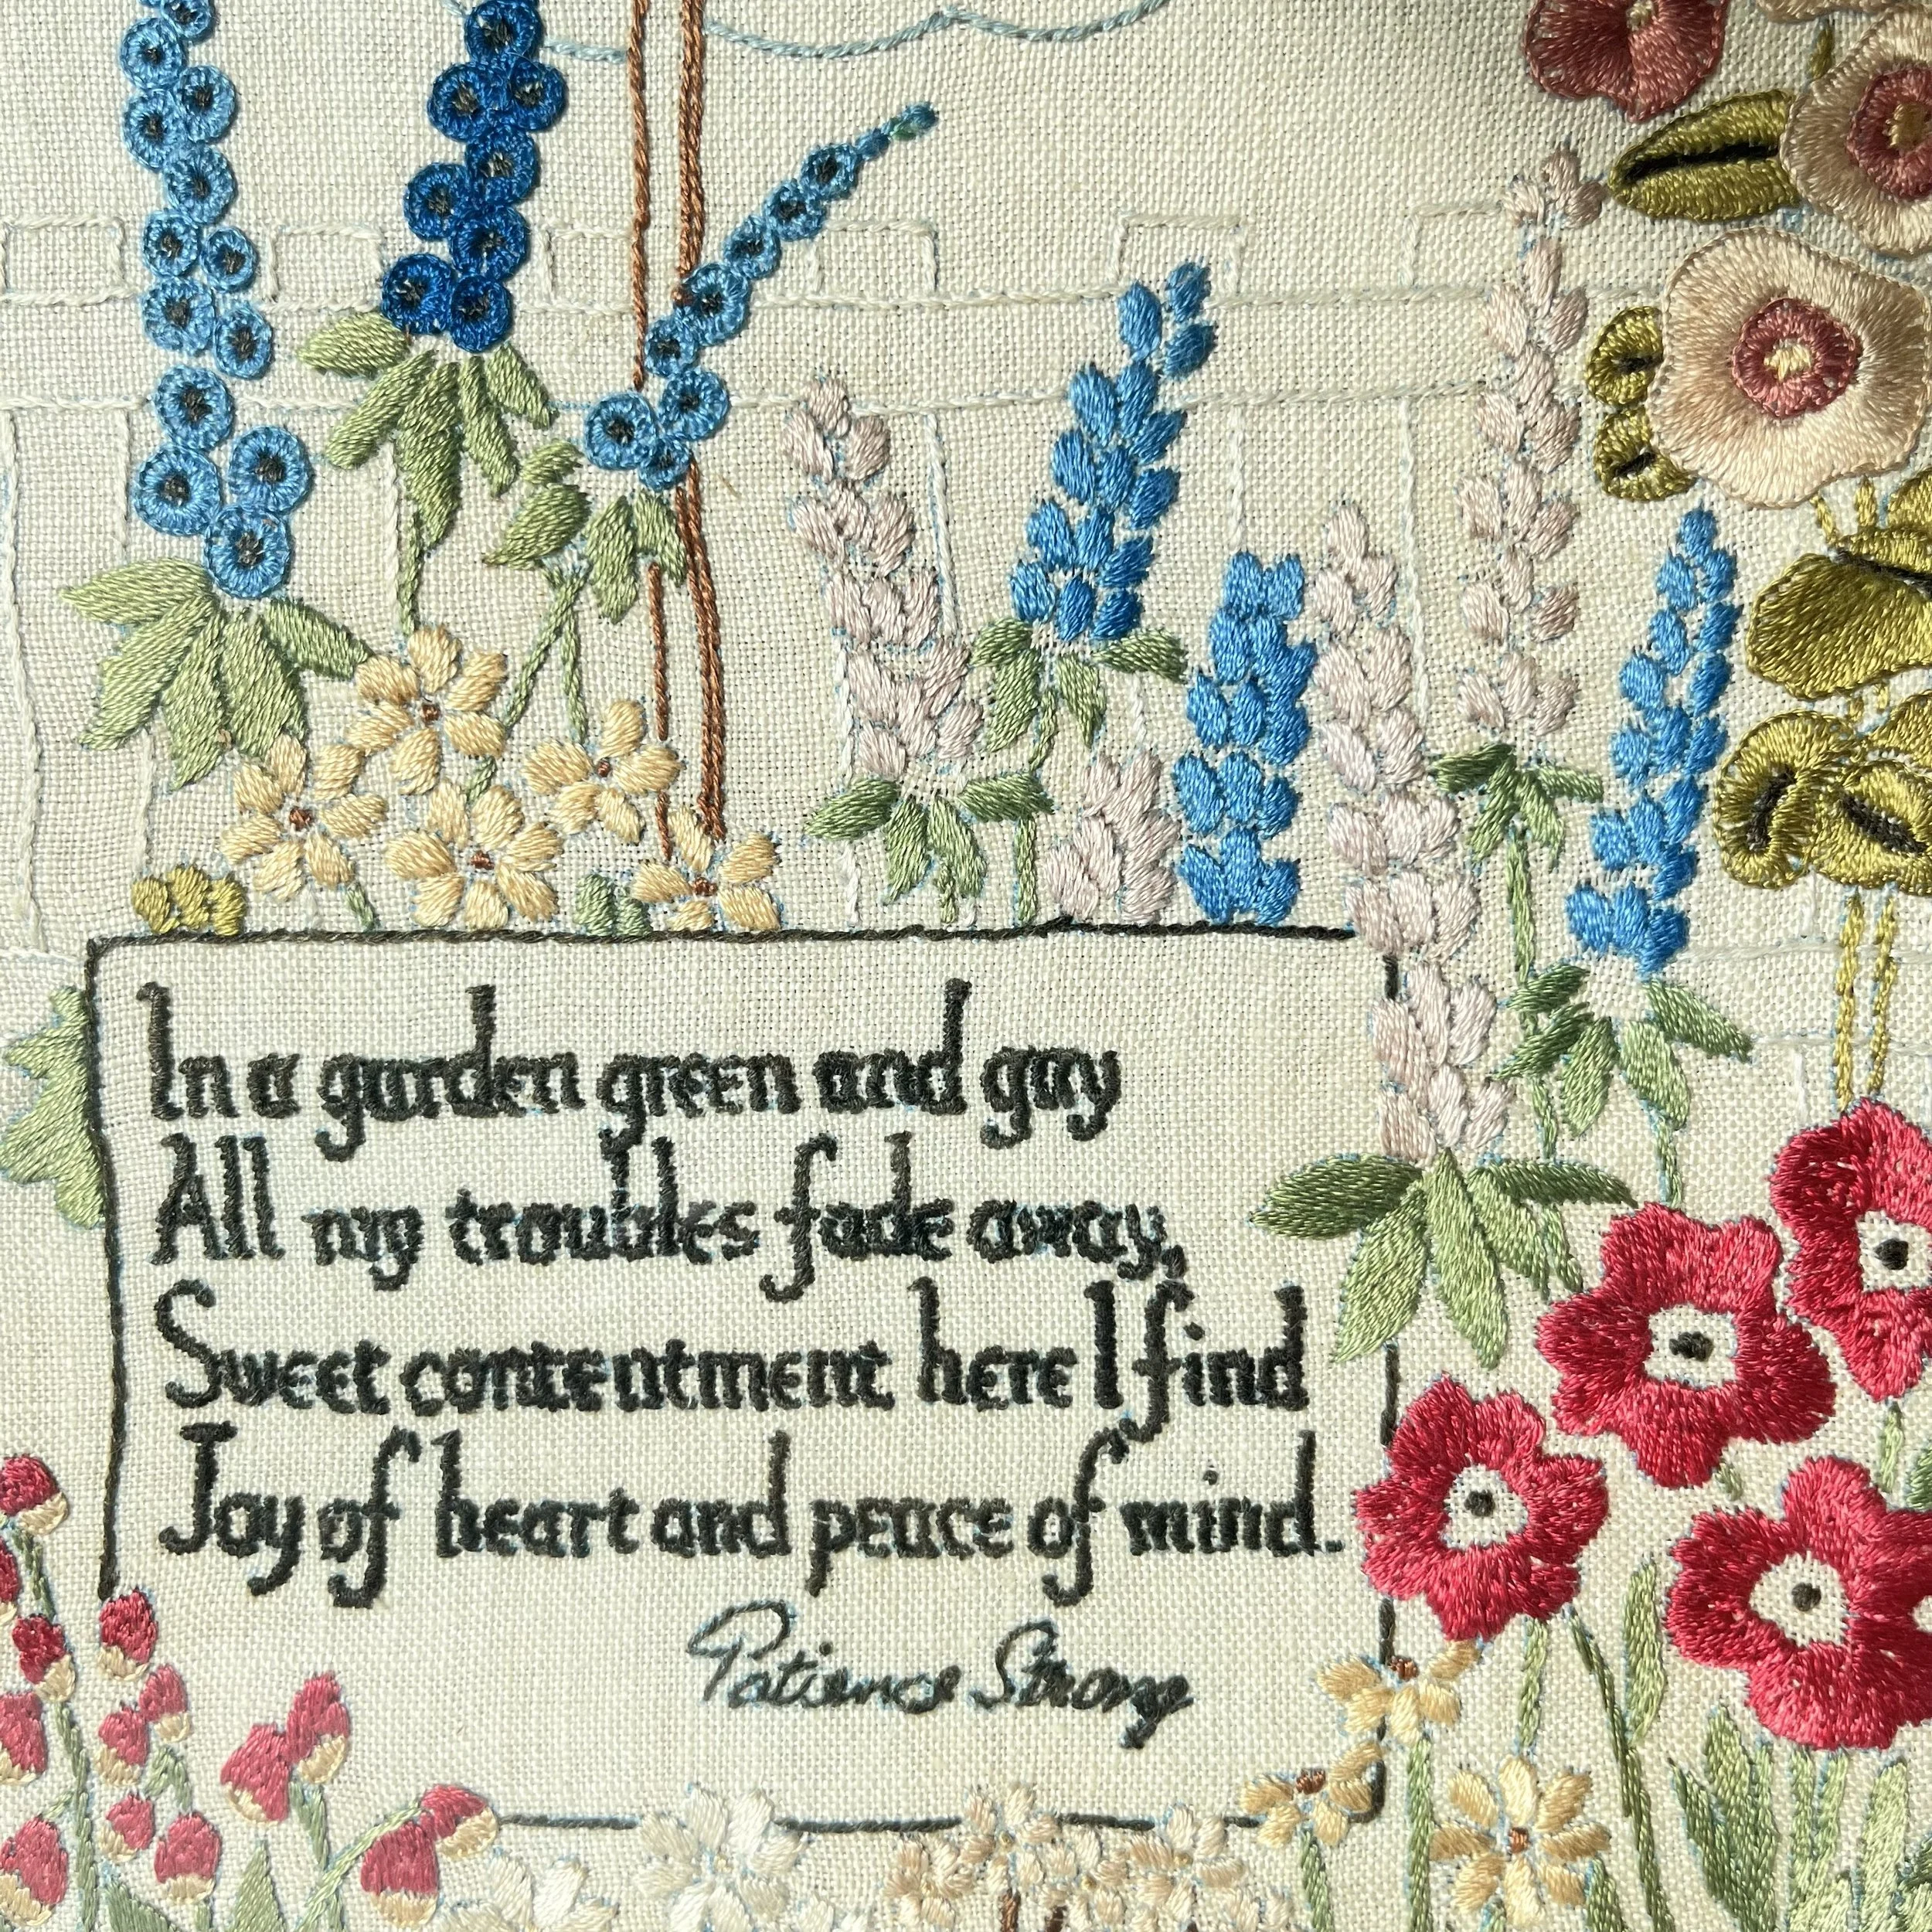 In a garden green and gay
All my troubles fade away,
Sweet contentment here I find
Joy of heart and peace of mind.
Patience Strong